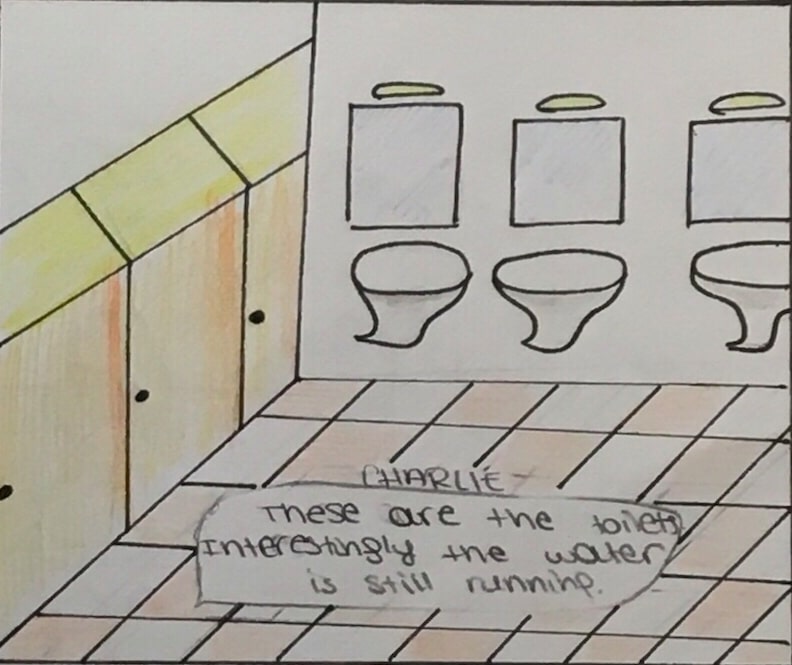 CHARLIE
These are the toilets
Interestingly the water
is still running.